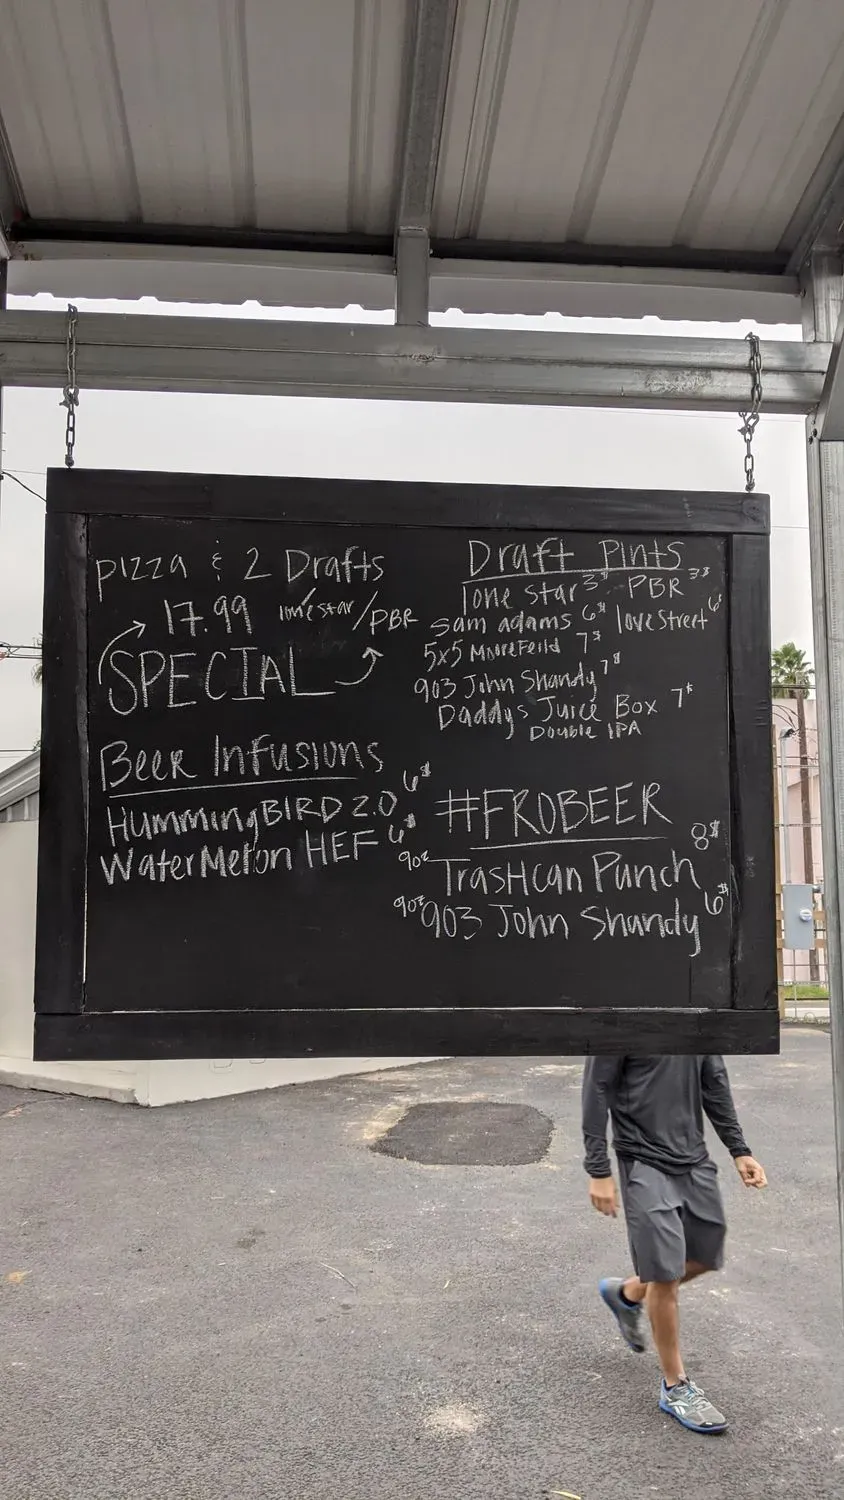 pizza & 2 Drafts
17.99 lone star/PBR
SPECIAL
Beer Infusions
HummingBIRD 2.0 6$
WaterMelon HEF 6$
Draft Pints
lone star 3$ PBR 3$
sam adams 6$ love street 6$
5x5 Moorefeild 7$
903 John Shandy 7$
Daddys Juice Box 7$
Double IPA
#FROBEER
9oz TrasHcan Punch 8$
9oz 903 John Shandy 6$